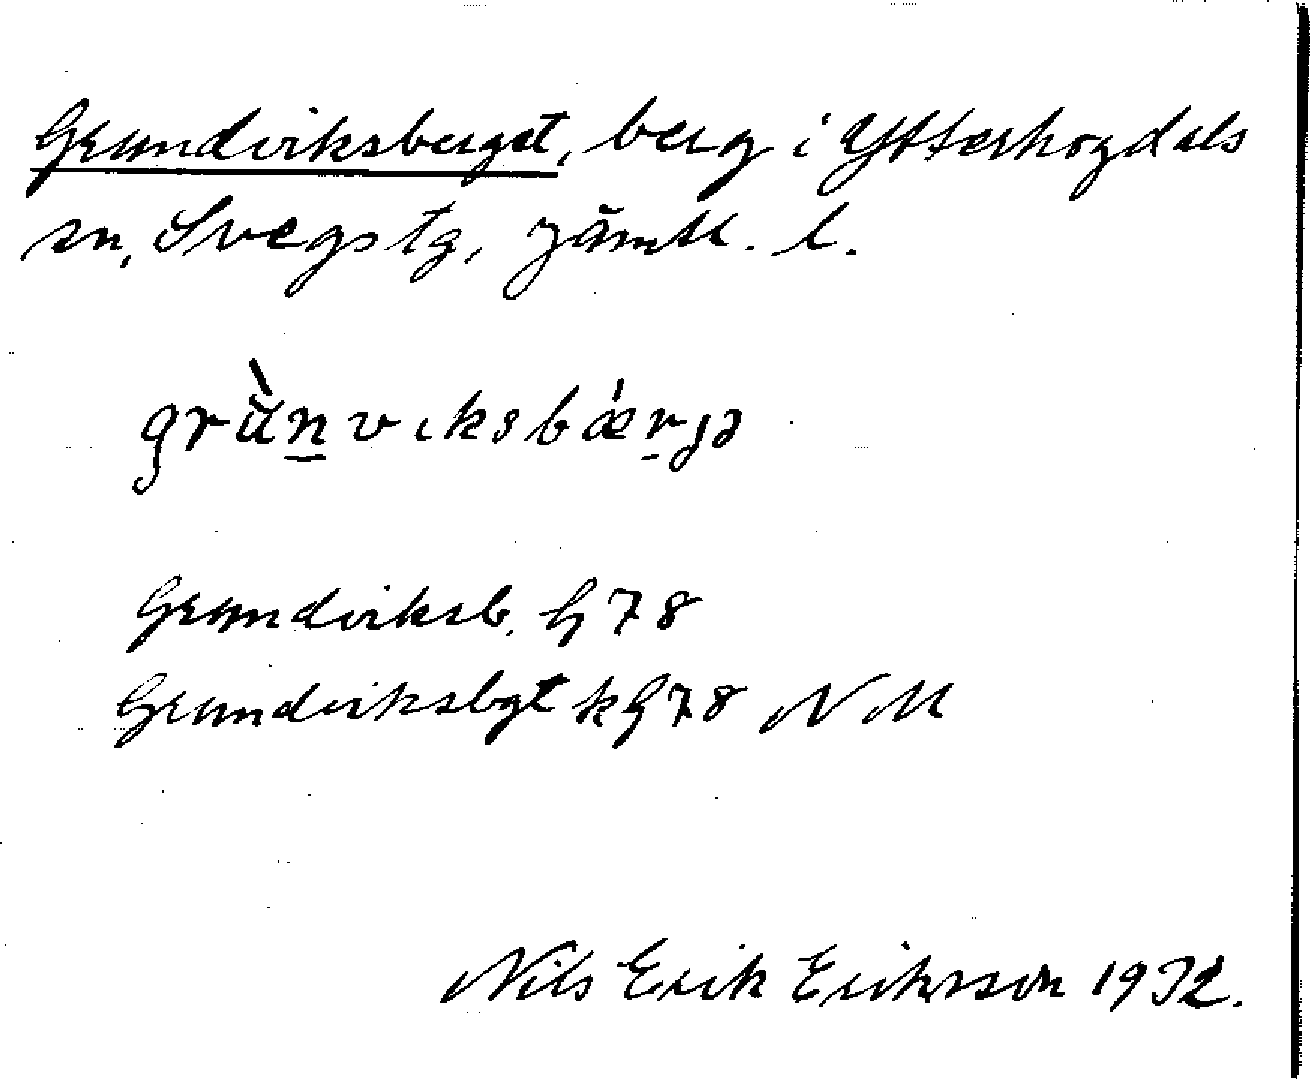 Grundviksberget, berg i Ytterhogdals
sn, Svegs tg, Jämtl. l.
grùn̲viksbǽr̲jə
Grundviksb. G 78
Grundviksbgt kG 78 NM
Nils Erik Eriksson 1932.